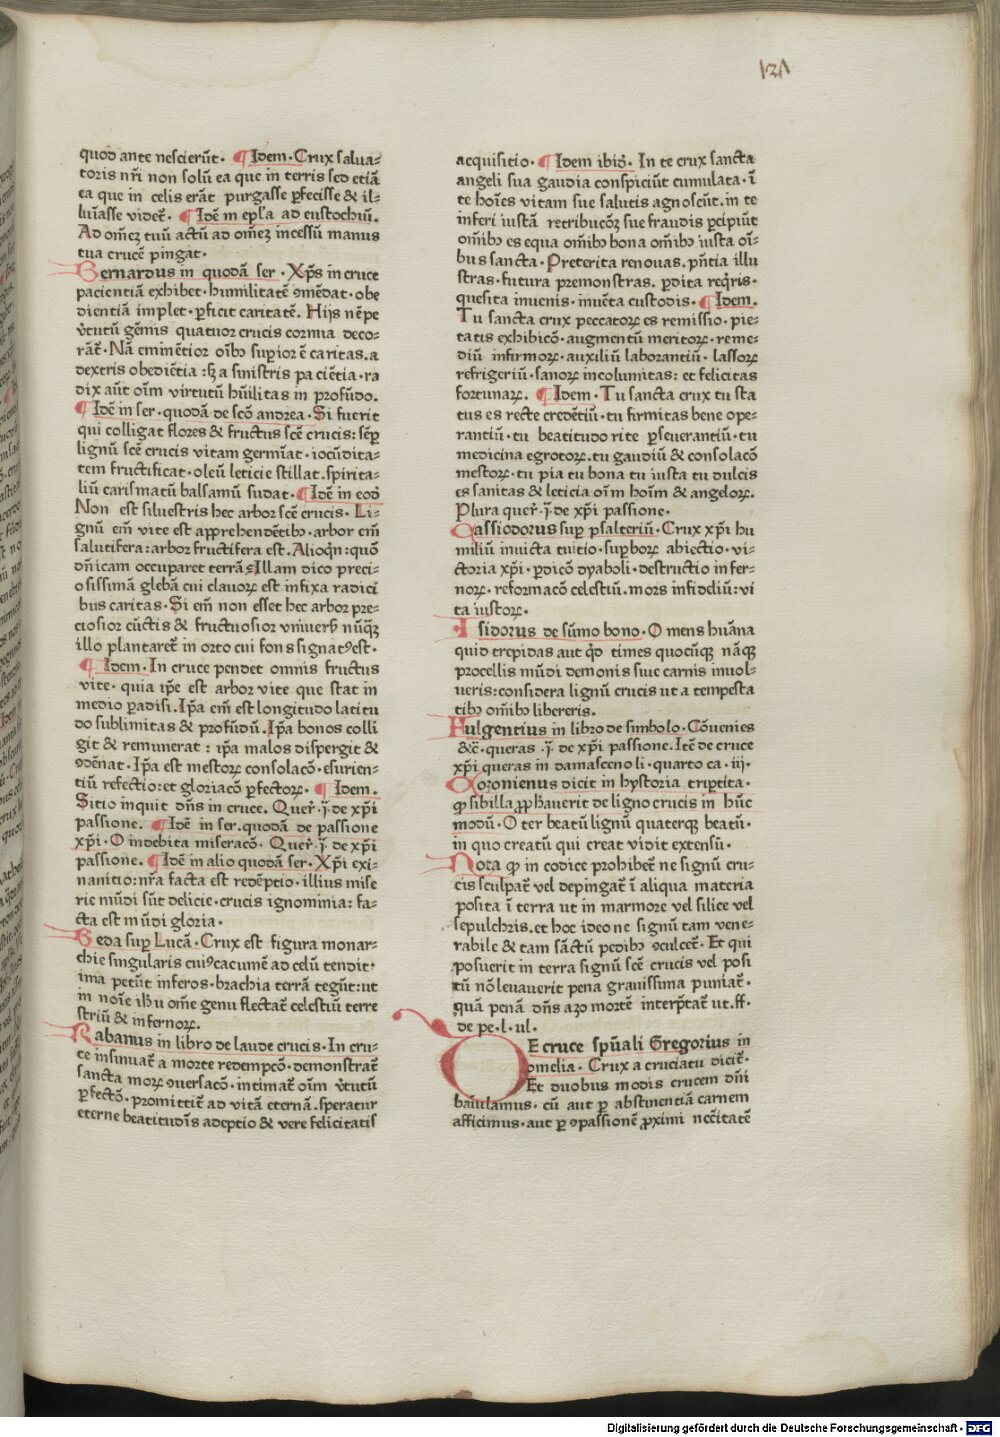 121
quod ante nescierūt· ¶ Idem· Crux salua⸗
toris nr̄i non solū ea que in terris sed etiā
ea que in celis erāt purgasse ꝑfecisse & il⸗
luīasse videt᷑· ¶ Idē in epl̄a ad eustochiū.
Ad omēꝫ tuū actū ad omēꝫ incessū manus
tua crucē pingat·
Bernardus in quodā ser· Xp̄s in cruce
pacientiā exhibet· humilitatē ꝯmēdat· obe
dientiā implet· ꝑficit caritatē. Hijs nēpe
v̄tutū gēmis quatuor crucis cornua deco⸗
rāt᷑· Nā eminētior oīb᷒ suꝑior ē caritas. a
dextris obediētia : sꝫ a sinistris paciētia· ra
dix aūt oīm virtutū hūilitas in profūdo.
¶ Idē in ser· quodā de scō andrea· Si fuerit
qui colligat flores & fructus scē crucis: sēꝑ
lignū scē crucis vitam germīat· iocūdita⸗
tem fructificat· oleū leticie stillat. spirita⸗
liū carismatū balsamū sudat· ¶ Idē in eod̄
Non est siluestris hec arbor scē crucis· Li⸗
gnū em̄ vite est apprehendētib᷒· arbor em̄
salutifera: arbor fructifera est. Alioqn̄: quō
dn̄icam occuparet terrā. Illam dico preci⸗
osissimā glebā cui clauoꝝ est infixa radici
bus caritas· Si em̄ non esset hec arbor pre⸗
ciosior cūctis & fructuosior vniuers᷒ nūꝗꝫ
illo plantaret᷑ in orto cui fons signat᷒ est·
¶ Idem· In cruce pendet omnis fructus
vite· quia ip̄e est arbor vite que stat in
medio ꝑadisi. Ip̄a em̄ est longitudo latitu
do sublimitas & profūdū. Ip̄a bonos colli
git & remunerat : ip̄a malos dispergit &
ꝯdēnat· Ip̄a est mestoꝝ consolacō· esurien⸗
tiū refectio: et gloriacō ꝑfectoꝝ· ¶ Idem.
Sitio inquit dn̄s in cruce. Quer̄· j̄· de xp̄i
passione. ¶ Idē in ser. quodā de passione
xp̄i· O indebita miseracō· Quer̄· j̄· de xp̄i
passione. ¶ Idē in alio quodā ser· Xp̄i exi⸗
nanitio: nr̄a facta est redēptio· illius mise
rie mūdi sūt delicie· crucis ignominia: fa⸗
cta est mūdi gloria·
Beda suꝑ Lucā· Crux est figura monar⸗
chie singularis cui᷒ cacumē ad celū tendit·
ima petūt inferos· brachia terrā tegūt: ut
in noīe ih̄u om̄e genu flectat᷑ celestiū terre
striū & infernoꝝ.
Rabanus in libro de laude crucis· In cru⸗
ce insinuat᷑ a morte redempcō· demonstrat᷑
sancta moꝝ ꝯuersacō· intimat᷑ oīm v̄tutū
ꝑfectō· promittit᷑ ad vitā eternā. speratur
eterne beatitudīs adeptio & vere felicitatis
acquisitio· ¶ Idem ibid̄. In te crux sancta
angeli sua gaudia conspiciūt cumulata· ī
te hoīes vitam sue salutis agnoscūt. in te
inferi iustā retribucōꝫ sue fraudis ꝑcipiūt
om̄ib᷒ es equa om̄ib᷒ bona om̄ib᷒ iusta oī⸗
bus sancta· Preterita renouas. pn̄tia illu
stras· futura premonstras. ꝑdita reꝗris·
quesita inuenis· inuēta custodis· ¶ Idem.
Tu sancta crux peccatoꝝ es remissio· pie⸗
tatis exhibicō· augmentū meritoꝝ· reme⸗
diū infirmoꝝ· auxiliū laborantiū· lassoꝝ
refrigeriū· sanoꝝ incolumitas: et felicitas
fortunaꝝ. ¶ Idem· Tu sancta crux tu sta
tus es recte credētiū· tu firmitas bene ope⸗
rantiū· tu beatitudo rite ꝑseuerantiū· tu
medicina egrotoꝝ. tu gaudiū & consolacō
mestoꝝ· tu pia tu bona tu iusta tu dulcis
es sanitas & leticia oīm hoīm & angeloꝝ.
Plura quer̄· j̄· de xp̄i passione·
Cassiodorus suꝑ psalteriū· Crux xp̄i hu
miliū inuicta tuitio· suꝑboꝝ abiectio· vi⸗
ctoria xp̄i· ꝑdicō dyaboli· destructio infer⸗
noꝝ· reformacō celestiū. mors infideliū: vi
ta iustoꝝ·
Isidorus de sūmo bono· O mens huāna
quid trepidas aut qd̄ times quocūqꝫ nāqꝫ
procellis mūdi demonis siue carnis inuol⸗
ueris: considera lignū crucis ut a tempesta
tib᷒ om̄ib᷒ libereris.
Fulgentius in libro de simbolo· Cōuenies
&c̄· queras· j̄· de xp̄i passione. Itē de cruce
xp̄i queras in damasceno li· quarto ca· iij·
Ozonienus dicit in hystoria triptita·
ꝙ sibilla ꝓphauerit de ligno crucis in hūc
modū· O ter beatū lignū quaterqꝫ beatū·
in quo creatū qui creat vidit extensū·
Nota ꝙ in codice prohibet᷑ ne signū cru⸗
cis sculpat᷑ vel depingat᷑ ī aliqua materia
posita ī terra ut in marmore vel silice vel
sepulchris. et hoc ideo ne signū tam vene⸗
rabile & tam sāctū pedib᷒ ꝯculcet᷑· Et qui
posuerit in terra signū scē crucis vel posi
tū nō leuauerit pena grauissima puniat᷑·
quā penā dn̄s azo mortē interp̄tat᷑ ut. ff·
de pe· l· ul·
DE cruce spūali Gregorius in
omelia· Crux a cruciatu dicit᷑·
Et duobus modis crucem dn̄i
baiulamus· cū aut ꝑ abstinentiā carnem
afficimus· aut ꝑ ꝯpassionē ꝓximi necītatē
Digitalisierung gefördert durch die Deutsche Forschungsgemeinschaft - DFG